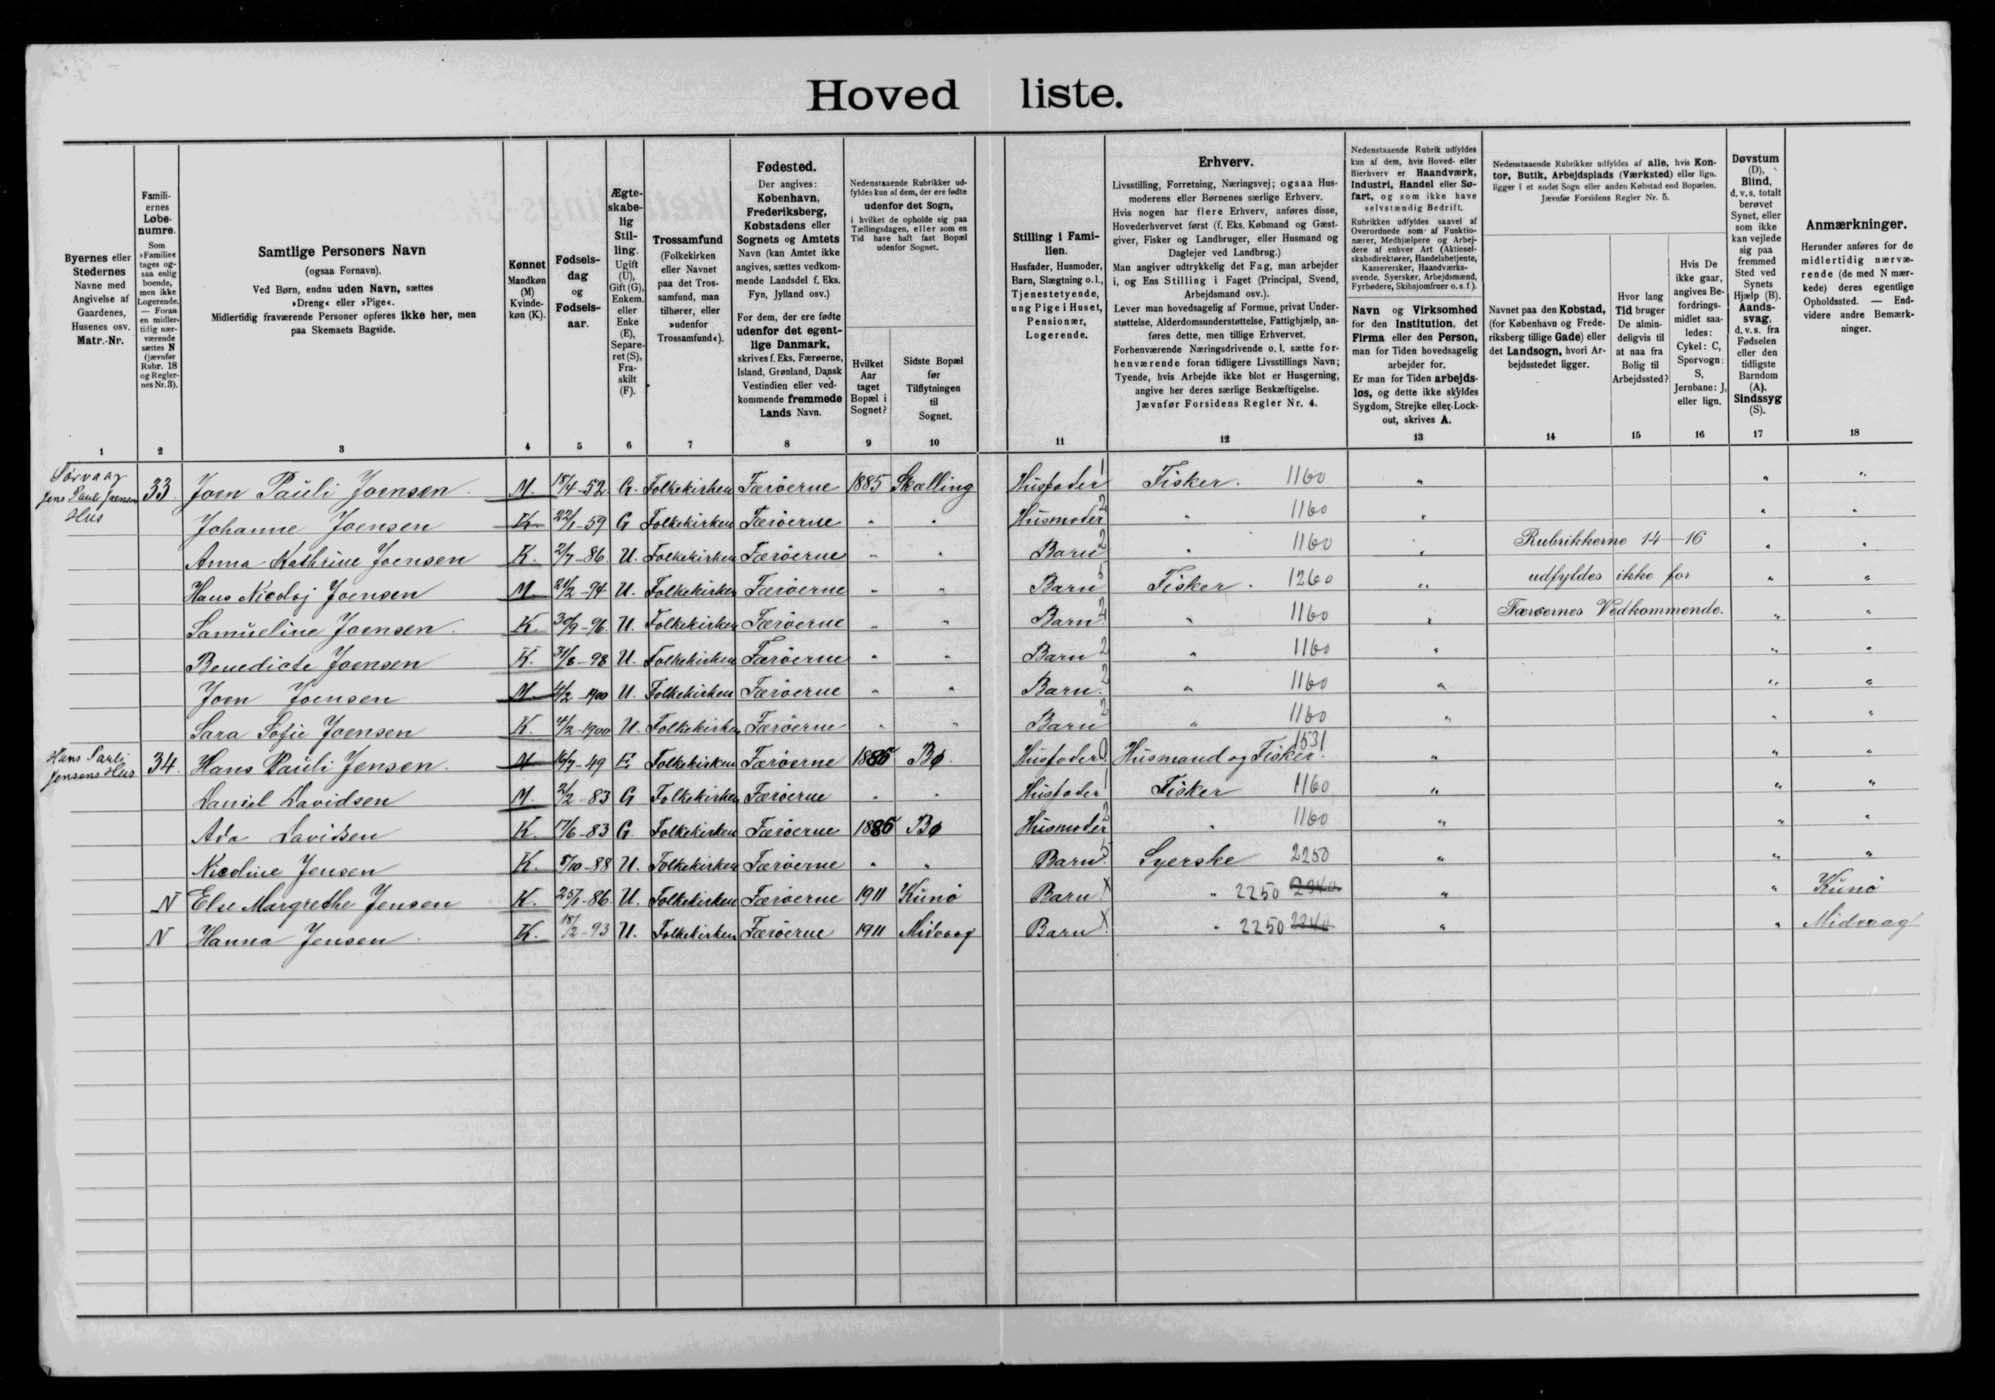 Hoved liste.
Byernes eller
Stedernes
Navne med
Angivelse af
Gaardenes,
Husenes osv.
Matr.-Nr.
Famili-
ernes
Løbe-
numre.
Som
»Familie«
tages og-
saa enlig
boende,
men ikke
Logerende.
— Foran
en midler-
tidig nær-
værende
sættes N
(jævnfør
Rubr. 18
og Regler-
nes Nr. 3).
Samtlige Personers Navn
(ogsaa Fornavn).
Ved Børn, endnu uden Navn, sættes
»Dreng« eller »Pige«.
Midlertidig fraværende Personer opføres ikke her, men
paa Skemaets Bagside.
Kønnet
Mandkøn
(M)
Kvinde-
køn (K).
Fødsels-
dag
og
Fødsels-
aar.
Ægte-
skabe-
lig
Stil-
ling.
Ugift
(U),
Gift (G),
Enkem.
eller
Enke
(E),
Separe-
ret (S),
Fra-
skilt
(F).
Trossamfund
(Folkekirken
eller Navnet
paa det Tros-
samfund, man
tilhører, eller
»udenfor
Trossamfund«).
Fødested.
Der angives:
København,
Frederiksberg,
Købstadens eller
Sognets og Amtets
Navn (kan Amtet ikke
angives, sættes vedkom-
mende Landsdel f. Eks.
Fyn, Jylland osv.)
For dem, der ere fødte
udenfor det egent-
lige Danmark,
skrives f. Eks. Færøerne,
Island, Grønland, Dansk
Vestindien eller ved-
kommende fremmede
Lands Navn.
Nedenstaaende Rubrikker ud-
fyldes kun af dem, der ere fødte
udenfor det Sogn,
i hvilket de opholde sig paa
Tællingsdagen, eller som en
Tid have haft fast Bopæl
udenfor Sognet.
Hvilket
Aar
taget
Bopæl i
Sognet?
Sidste Bopæl
før
Tilflytningen
til
Sognet.
Stilling i Fami-
lien.
Husfader, Husmoder,
Barn, Slægtning o. l.,
Tjenestetyende,
ung Pige i Huset,
Pensionær,
Logerende.
Erhverv.
Livsstilling, Forretning, Næringsvej; ogsaa Hus-
moderens eller Børnenes særlige Erhverv.
Hvis nogen har flere Erhverv, anføres disse,
Hovederhvervet først (f. Eks. Købmand og Gæst-
giver, Fisker og Landbruger, eller Husmand og
Daglejer ved Landbrug.)
Man angiver udtrykkelig det Fag, man arbejder
i, og Ens Stilling i Faget (Principal, Svend,
Arbejdsmand osv.).
Lever man hovedsagelig af Formue, privat Under-
støttelse, Alderdomsunderstøttelse, Fattighjælp, an-
føres dette, men tillige Erhvervet.
Forhenværende Næringsdrivende o. l. sætte for-
henværende foran tidligere Livsstillings Navn;
Tyende, hvis Arbejde ikke blot er Husgerning,
angive her deres særlige Beskæftigelse.
Jævnfør Forsidens Regler Nr. 4.
Nedenstaaende Rubrik udfyldes
kun af dem, hvis Hoved- eller
Bierhverv er Haandværk,
Industri, Handel eller Sø-
fart, og som ikke have
selvstændig Bedrift.
Rubrikken udfyldes saavel af
Overordnede som af Funktio-
nærer, Medhjælpere og Arbej-
dere af enhver Art (Aktiesel-
skabsdirektører, Handelsbetjente,
Kasserersker, Haandværks-
svende, Syersker, Arbejdsmænd,
Fyrbødere, Skibsjomfruer o. s. f.).
Navn og Virksomhed
for den Institution, det
Firma eller den Person,
man for Tiden hovedsagelig
arbejder for.
Er man for Tiden arbejds-
løs, og dette ikke skyldes
Sygdom, Strejke eller Lock-
out, skrives A.
Nedenstaaende Rubrikker udfyldes af alle, hvis Kon-
tor, Butik, Arbejdsplads (Værksted) eller lign.
ligger i et andet Sogn eller anden Købstad end Bopælen.
Jævnfør Forsidens Regler Nr. 5.
Navnet paa den Købstad,
(for København og Frede-
riksberg tillige Gade) eller
det Landsogn, hvori Ar-
bejdsstedet ligger.
Hvor lang
Tid bruger
De almin-
deligvis til
at naa fra
Bolig til
Arbejdssted?
Hvis De
ikke gaar,
angives Be-
fordrings-
midlet saa-
ledes:
Cykel: C,
Sporvogn:
S,
Jernbane: J,
eller lign.
Døvstum
(D),
Blind,
d. v. s. totalt
berøvet
Synet, eller
som ikke
kan vejlede
sig paa
fremmed
Sted ved
Synets
Hjælp (B).
Aands-
svag,
d. v. s. fra
Fødselen
eller den
tidligste
Barndom
(A).
Sindssyg
(S).
Anmærkninger.
Herunder anføres for de
midlertidig nærvæ-
rende (de med N mær-
kede) deres egentlige
Opholdssted. — End-
videre andre Bemærk-
ninger.
1 2 3 4 5 6 7 8 9 10 11 12 13 14 15 16 17 18
Sørvaag
Jens Pauli Joensen 33. Joen Pauli Joensen. M. 18/4-52 G. Folkekirken Færøerne 1885 Skælling Husfader 1 Fisker. 1160 " " "
Hus
Johanne Joensen K 22/1-59 G Folkekirken Færøerne " " Husmoder 2 " 1160 " " "
Anna Kathrine Joensen K. 2/7-86. U. Folkekirken Færøerne " " Barn 2 " 1160 " Rubrikkerne 14-16 " "
Hans Nicolaj Joensen M 21/2-94 U. Folkekirken Færøerne " " Barn 5 Fisker. 1260 " udfyldes ikke for " "
Samueline Joensen. K 30/9-96. U. Folkekirken Færøerne " " Barn 2 " 1160 " Færøernes Vedkommende. " "
Benedicte Joensen K. 31/8-98 U. Folkekirken Færøerne " " Barn 2 " 1160 " " "
Joen Joensen M 4/2-1900 U. Folkekirken Færøerne " " Barn. 2 " 1160 " " "
Sara Sofie Joensen K. 4/2-1900 U. Folkekirken Færøerne " " Barn 2 " 1160 " " "
Hans Pauli
Jensens Hus 34. Hans Pauli Jensen. M 16/7-49 E Folkekirken Færøerne 1885 Bø. Husfader 0 Husmand og Fisker. 1531 " " "
Daniel Davidsen M. 2/2-83 G Folkekirken Færøerne " " Husfader 1 Fisker 1160 " " "
Ada Davidsen K. 17/6-83 G. Folkekirken Færøerne 1885 Bø Husmoder 2 " 1160 " " "
Nicoline Jensen K. 5/10-88 U. Folkekirken Færøerne " " Barn. 5 Syerske 2250 " " "
N Else Margrethe Jensen K. 25/1-86. U. Folkekirken Færøerne 1911 Kunø Barn X " 2250 " " Kunø
N Hanna Jensen. K. 18/2-93 U. Folkekirken Færøerne 1911 Midvaag Barn X " 2250 " " Midvaag